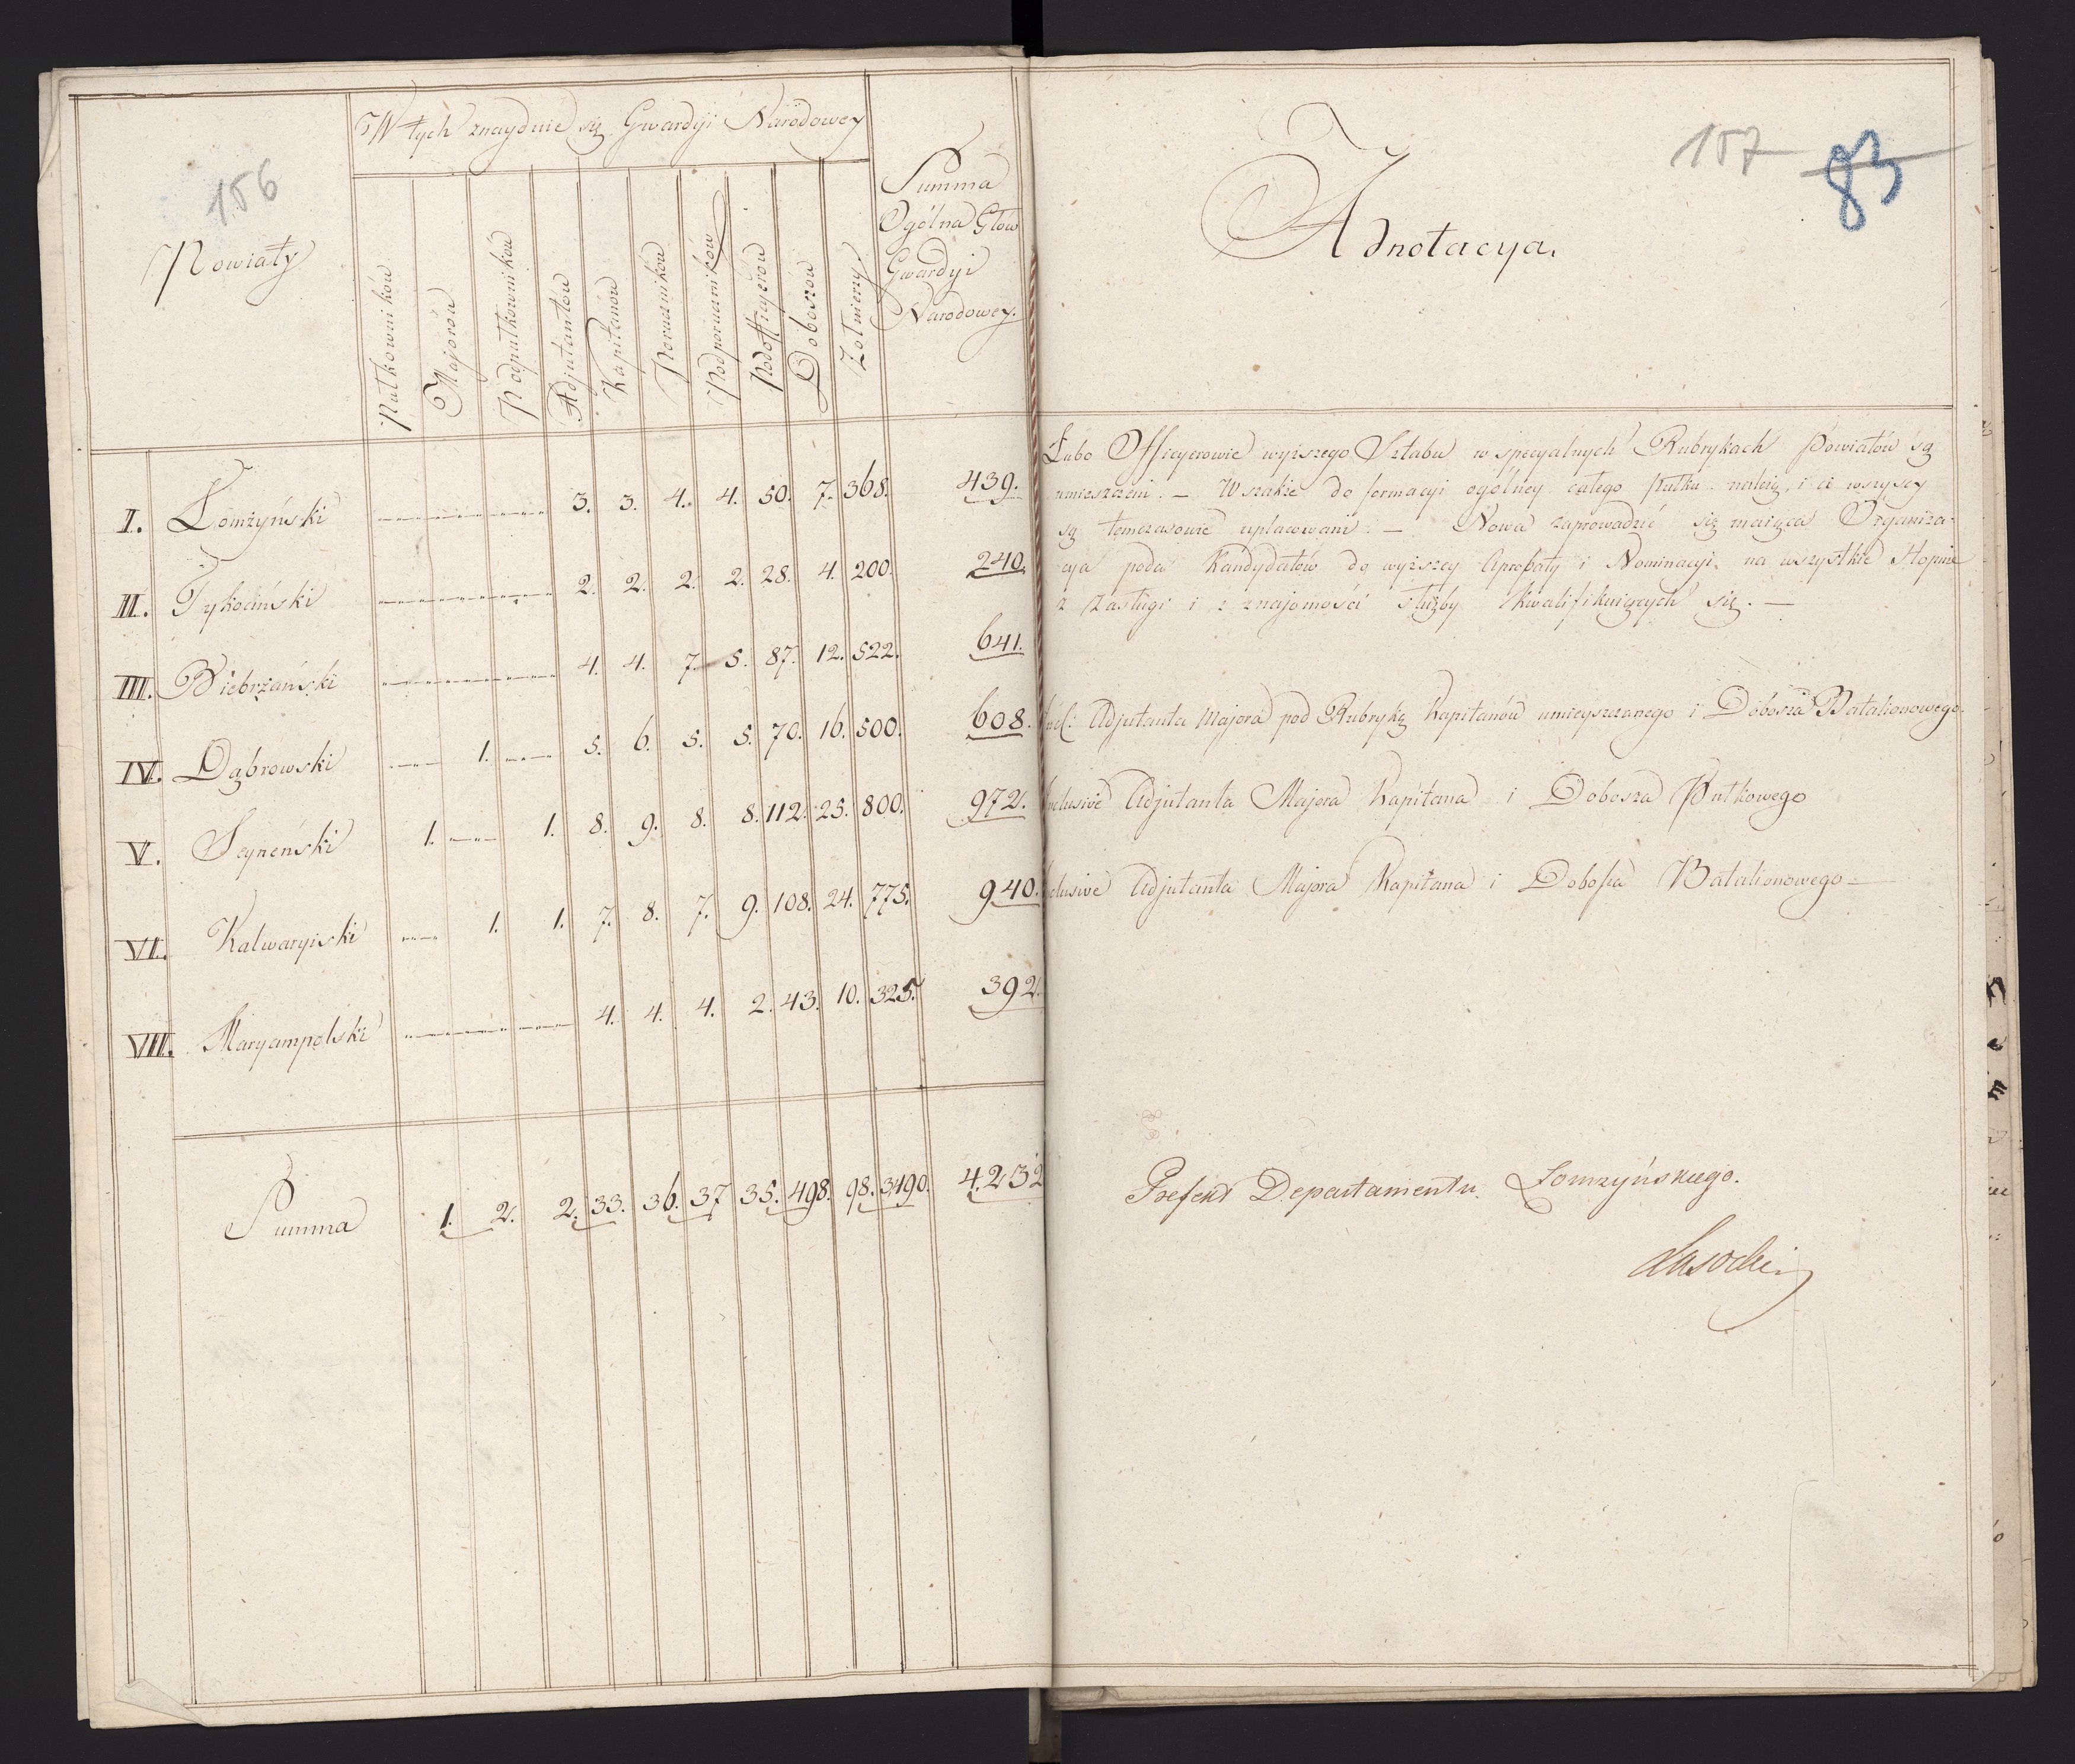 156
Powiaty
W tych znayduie się Gwardyi Narodowey
Pułkowników
Majorów
Podpułkowników
Adjutantów
Kapitanów
Poruczników
Podporuczników
Podofficyerów
Doboszów
Żołnierzy
Summa
Ogólna Głów
Gwardyi
Narodowey.
I. Łomżyński 3. 3. 4. 4. 50. 7. 368. 439.
II. Tykocinski 2. 2. 2. 2. 28. 4. 200. 240.
III. Biebrzański 4. 4. 7. 5. 87. 12. 522. 641.
IV. Dąbrowski 1. 5. 6. 5. 5. 70. 16. 500. 608.
V. Seyneński 1. 1. 8. 9. 8. 8. 112. 25. 800. 972.
VI. Kalwaryiski 1. 1. 7. 8. 7. 9. 108. 24. 775. 940.
VII. Maryampolski 4. 4. 4. 2. 43. 10. 325. 392.
Summa 1. 2. 2. 33. 36. 37 35. 498. 98. 3490. 4.232
157 83
Adnotacya.
Lubo Officyerowie wyższego Sztabu w specyalnych Rubrykach Powiatów są
umieszczeni. — Wszakże do formacyi ogólney całego Pułku należą, i ci wszyscy
są tymczasowie uplacowani. — Nowa zaprowadzić się maiąca Organiza-
cya poda Kandydatów do wyższey Aprobaty i Nominacyi na wszystkie Stopnie
z Zasługi i z znajomości służby kwalifikuiących się. —
Incl: Adjutanta Majora pod Rubryką Kapitanów umieyszczanego i Dobosza Batalionowego.
inclusive Adjutanta Majora Kapitana i Dobosza Pułkowego
inclusive Adjutanta Majora Kapitana i Dobosza Batalionowego —
Prefekt Departamentu Łomżyńskiego.
Lasocki